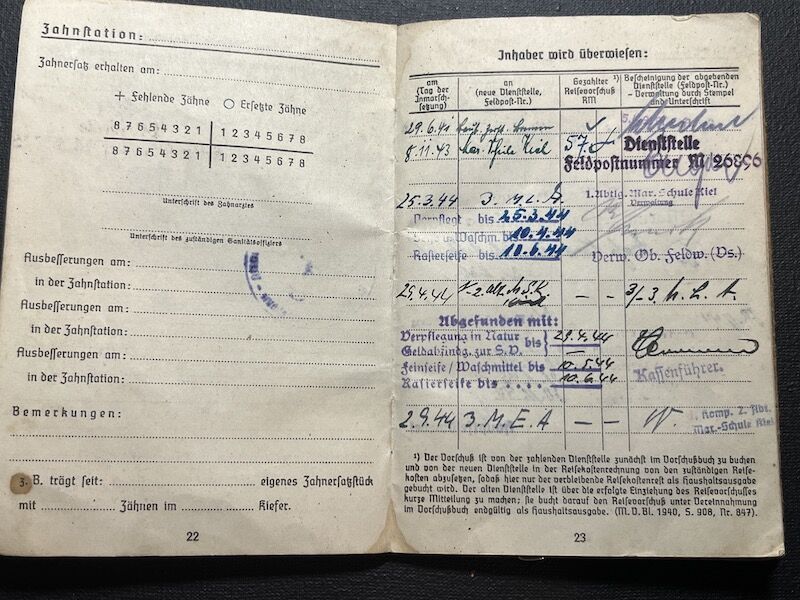 Zahnstation:
Zahnersatz erhalten am:
+ Fehlende Zähne ○ Ersetzte Zähne
8 7 6 5 4 3 2 1 1 2 3 4 5 6 7 8
8 7 6 5 4 3 2 1 1 2 3 4 5 6 7 8
Unterschrift des Zahnarztes
Unterschrift des zuständigen Sanitätsoffiziers
Ausbesserungen am:
in der Zahnstation:
Ausbesserungen am:
in der Zahnstation:
Ausbesserungen am:
in der Zahnstation:
Bemerkungen:
z. B. trägt seit: eigenes Zahnersatzstück
mit Zähnen im Kiefer.
22
Inhaber wird überwiesen:
am (Tag der Inmarschsetzung)
an (neue Dienststelle, Feldpost-Nr.)
Gezahlter Reisevorschuß ¹) RM
Bescheinigung der abgebenden Dienststelle (Feldpost-Nr.) - Verwaltung durch Stempel und Unterschrift
29.6.41
8.11.43 Kiel 57,-
Dienststelle
Feldpostnummer M 26896
25.3.44 3. M.L.A.
1. Abtlg. Mar. Schule Kiel
Verwaltung
Verpflegt bis 25.3.44
Waschm. bis 10.4.44
Rasierseife bis 10.6.44
Verw. Ob. Feldw. (Vs.)
29.4.44 - -
Abgefunden mit:
Verpflegung in Natur bis 29.4.44
Geldabfindg. zur S.V. —
Feinseife / Waschmittel bis 10.5.44
Rasierseife bis 10.6.44
Kassenführer.
2.9.44 3. M.E.A - -
Komp. 2. Abt.
Mar.-Schule Kiel
¹) Der Vorschuß ist von der zahlenden Dienststelle zunächst im Vorschußbuch zu buchen
und von der neuen Dienststelle in der Reisekostenrechnung von den zuständigen Reise-
kosten abzusetzen, sodaß hier nur der verbleibende Reisekostenrest als Haushaltsausgabe
gebucht wird. Der alten Dienststelle ist über die erfolgte Einziehung des Reisevorschusses
kurze Mitteilung zu machen; sie bucht darauf den Reisevorschuß unter Vereinnahmung
im Vorschußbuch endgültig als Haushaltsausgabe. (M. D. Bl. 1940, S. 908, Nr. 847).
23